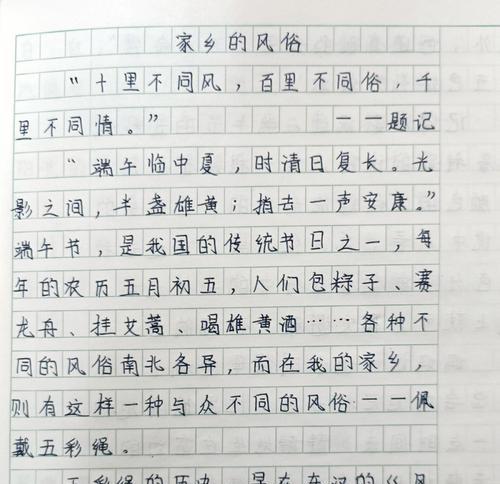 家乡的风俗
“十里不同风，百里不同俗，千
里不同情。”——题记
“端午临中夏，时清日复长。光
影之间，半盏雄黄；捎去一声安康。”
端午节，是我国的传统节日之一，每
年的农历五月初五，人们包粽子、赛
龙舟、挂艾蒿、喝雄黄酒……各种不
同的风俗南北各异，而在我的家乡，
则有这样一种与众不同的风俗——佩
戴五彩绳。
五彩绳的历史，是在东汉的《风